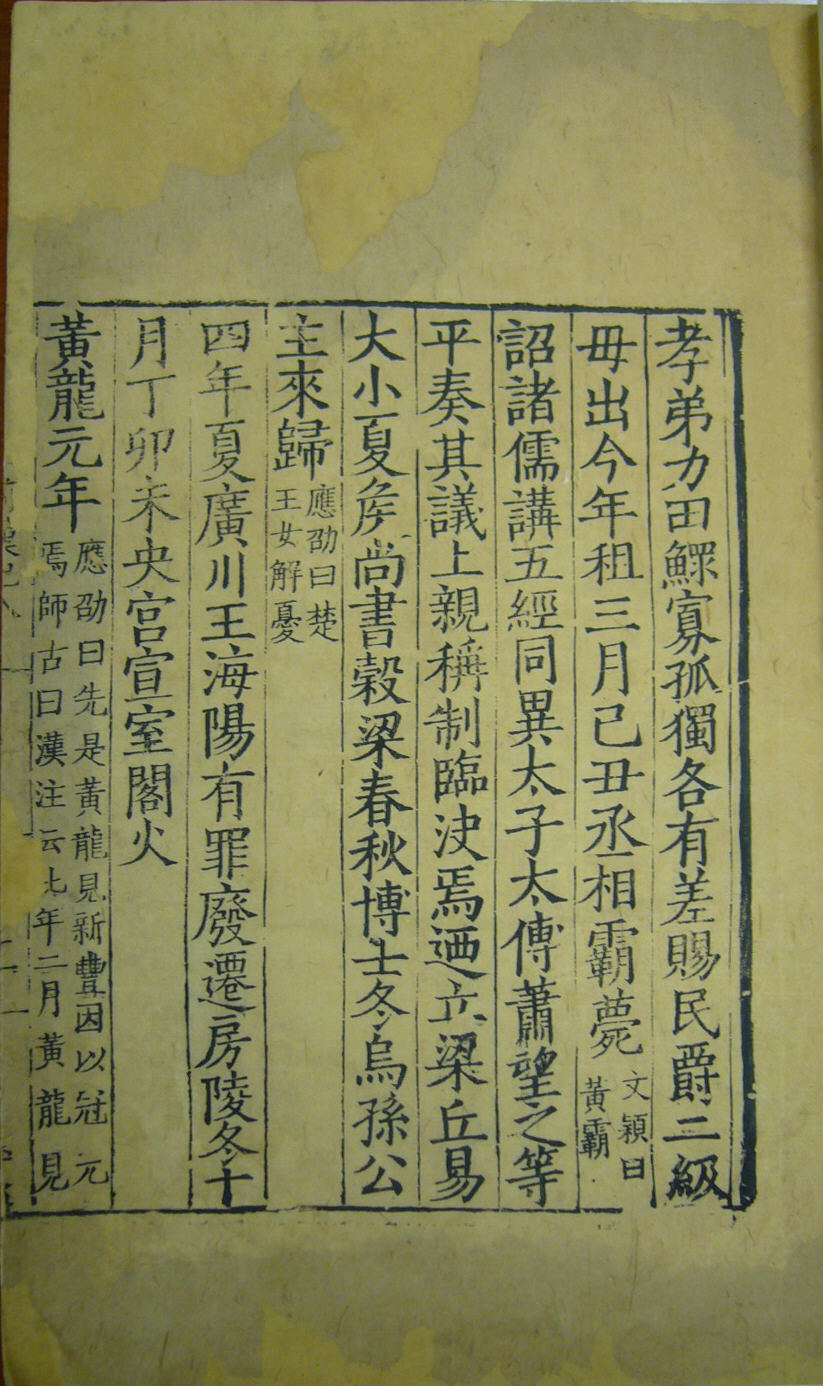 孝弟力田鰥寡孤獨各有差賜民爵二級
毋出今年租三月己丑丞相霸薨文穎曰
黃霸
詔諸儒講五經同異太子太傅蕭望之等
平奏其議上親稱制臨決焉迺立梁丘易
大小夏矦尚書榖梁春秋博士冬烏孫公
主來歸應劭曰楚
王女解憂
四年夏廣川王海陽有罪廢遷房陵冬十
月丁卯未央宮宣室閣火
黃龍元年應劭曰先是黃龍見新豐因以冠元
焉師古曰漢注云此年二月黃龍見